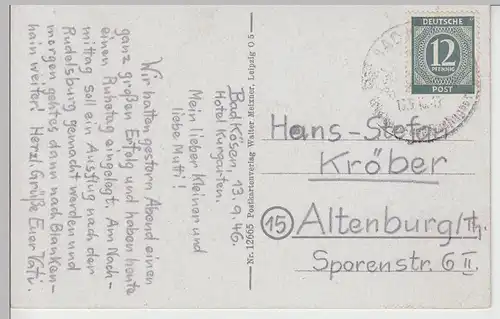 Bad Kösen, 13.9.46.
Hotel Kurgarten.
Mein lieber Kleiner und
liebe Mutti!
Wir hatten gestern Abend einen
ganz großen Erfolg und haben heute
einen Ruhetag eingelegt. Am Nach-
mittag soll ein Ausflug nach der
Rudelsburg gemacht werden und
morgen geht es dann nach Blanken-
hain weiter! Herzl. Grüße Euer Vati.
Nr. 12665 Postkartenverlag Walter Meixner, Leipzig O 5
DEUTSCHE
12
PFENNIG
POST
BAD
Hans-Stefan
Kröber
15 Altenburg/Th.
Sporenstr. 6 II.